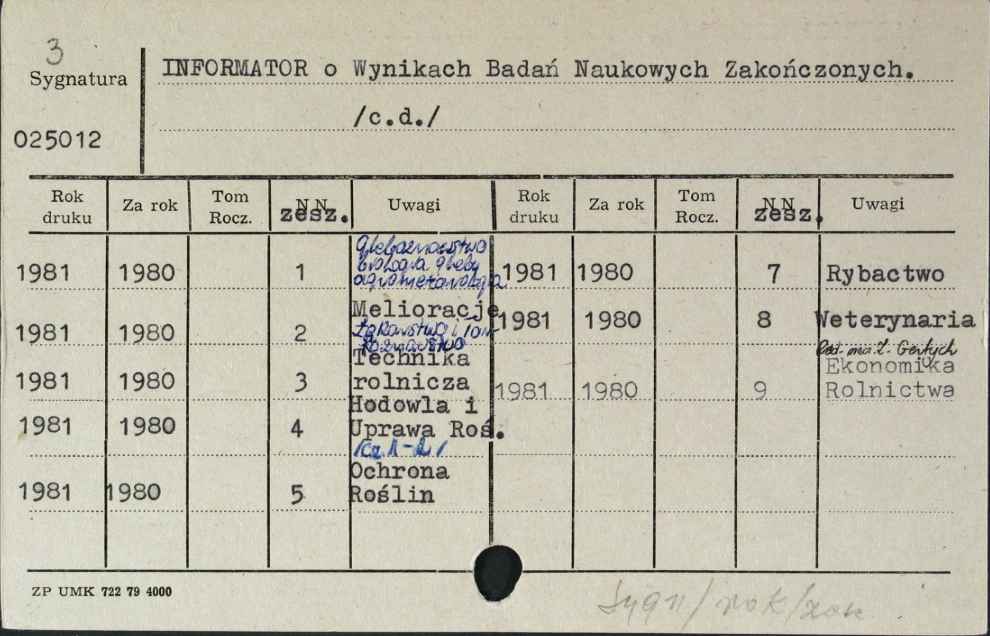 3
Sygnatura
025012
INFORMATOR o Wynikach Badań Naukowych Zakończonych.
/c.d./
Rok druku Za rok Tom Rocz. N N zesz. Uwagi Rok druku Za rok Tom Rocz. N N zesz. Uwagi
1981 1980 1 gleboznawstwo
biologia gleby
agrometeorologia
1981 1980 7 Rybactwo
1981 1980 2 Melioracje
Łąkarstwo i Torfoznawstwo
1981 1980 8 Weterynaria
1981 1980 3 Technika
rolnicza
Red. nauk. Z. Gertych
1981 1980 9 Ekonomika
Rolnictwa
1981 1980 4 Hodowla i
Uprawa Roś.
/Cz. 1-2/
1981 1980 5 Ochrona
Roślin
ZP UMK 722 79 4000
Sygn/rok/rok